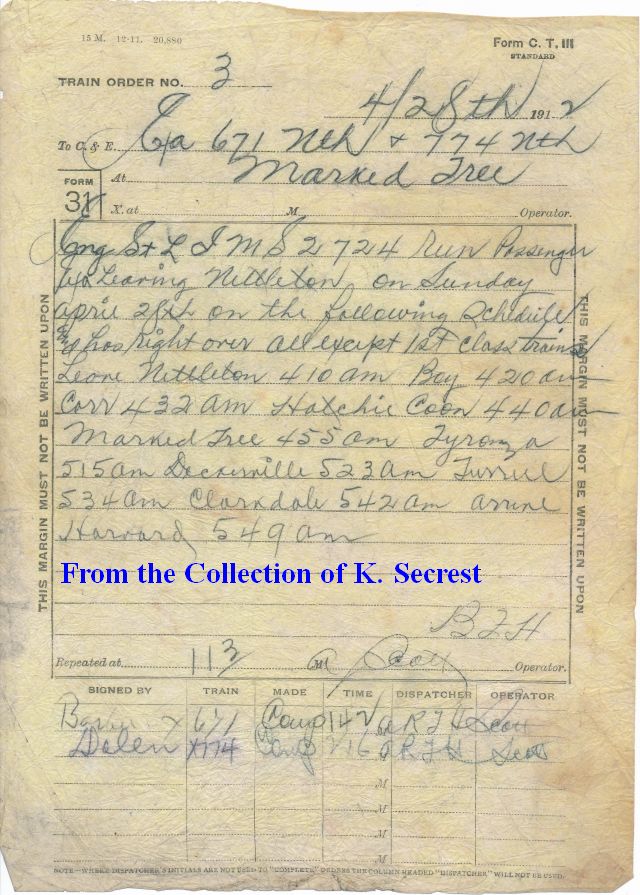 15 M. 12-11. 20,880
Form C. T. III
STANDARD
TRAIN ORDER NO. 3
4/28th 1912
To C. & E. Exa 671 Nth & 774 Nth
FORM 31
At Marked Tree
X. at M Operator.
Eng St L I M S 2724 Run Passenger
Leaving Nettleton on Sunday
April 28th on the following Schedule
has right over all except 1st class trains
Leave Nettleton 410 am Bay 420 am
Corr 432 am Hatchie Coon 440 am
Marked Tree 455 am Tyronza
515 am Deckerville 523 am Turrell
534 am Clarkdale 542 am arrive
Harvard 549 am
THIS MARGIN MUST NOT BE WRITTEN UPON
THIS MARGIN MUST NOT BE WRITTEN UPON
From the Collection of K. Secrest
Repeated at 113 M Scott Operator.
SIGNED BY TRAIN MADE TIME DISPATCHER OPERATOR
x 671 Comp 142 a RJH Scott
Dolen x774 Comp 216 a RJH Scott
M
M
M
M
NOTE—WHERE DISPATCHER'S INITIALS ARE NOT USED TO "COMPLETE" ORDERS THE COLUMN HEADED "DISPATCHER" WILL NOT BE USED.